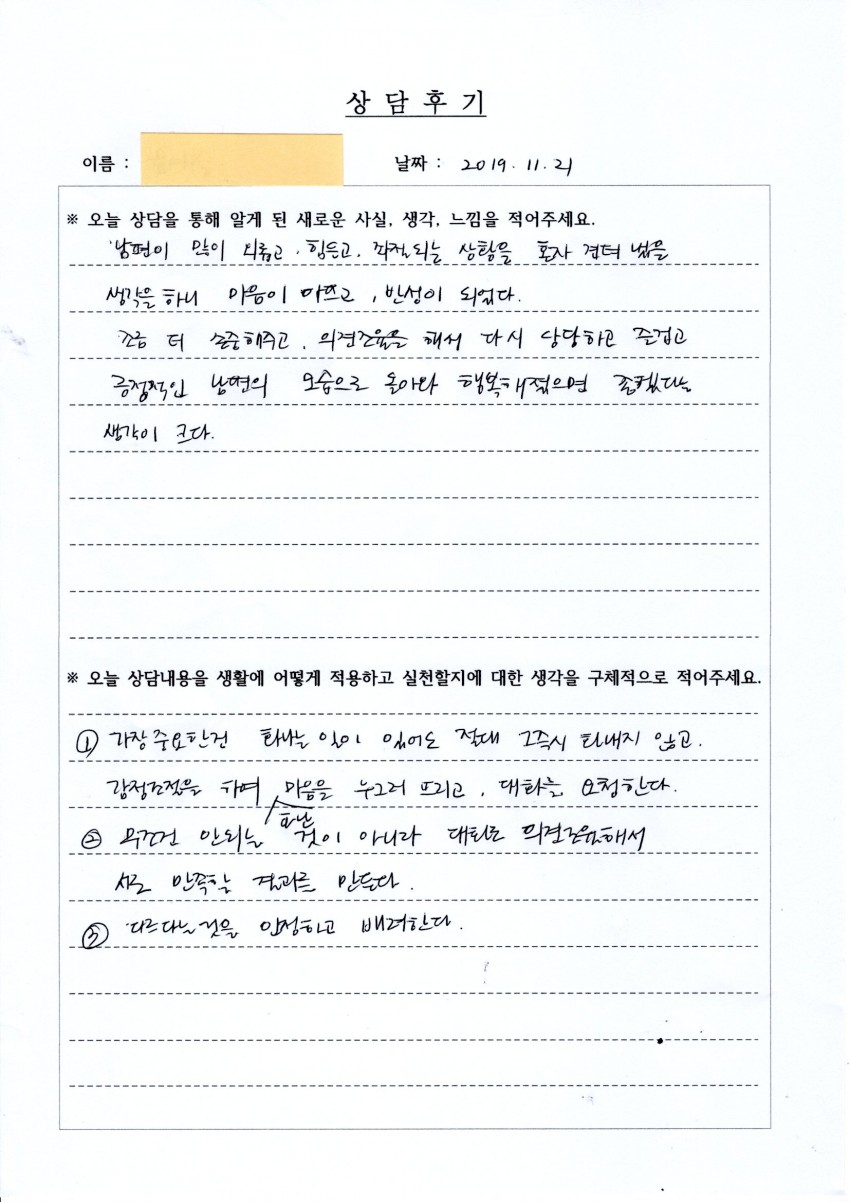 상 담 후 기
이름 :
날짜 : 2019. 11. 21
※ 오늘 상담을 통해 알게 된 새로운 사실, 생각, 느낌을 적어주세요.
남편이 많이 외롭고, 힘든고, 좌절되는 상황을 혼자 견뎌 냈을
생각을 하니 마음이 아프고, 반성이 되었다.
조금 더 존중해주고, 의견조율을 해서 다시 당당하고 즐겁고
긍정적인 남편의 모습으로 돌아와 행복해졌으면 좋겠다는
생각이 크다.
※ 오늘 상담내용을 생활에 어떻게 적용하고 실천할지에 대한 생각을 구체적으로 적어주세요.
① 가장 중요한건 화나는 일이 있어도 절대 그즉시 화내지 않고.
감정조절을 하며 화난 마음을 누그러 뜨리고, 대화를 요청한다.
② 무조건 안되는 것이 아니라 대화로 의견조율해서
서로 만족할 결과를 만든다.
③ 다르다는것을 인정하고 배려한다.